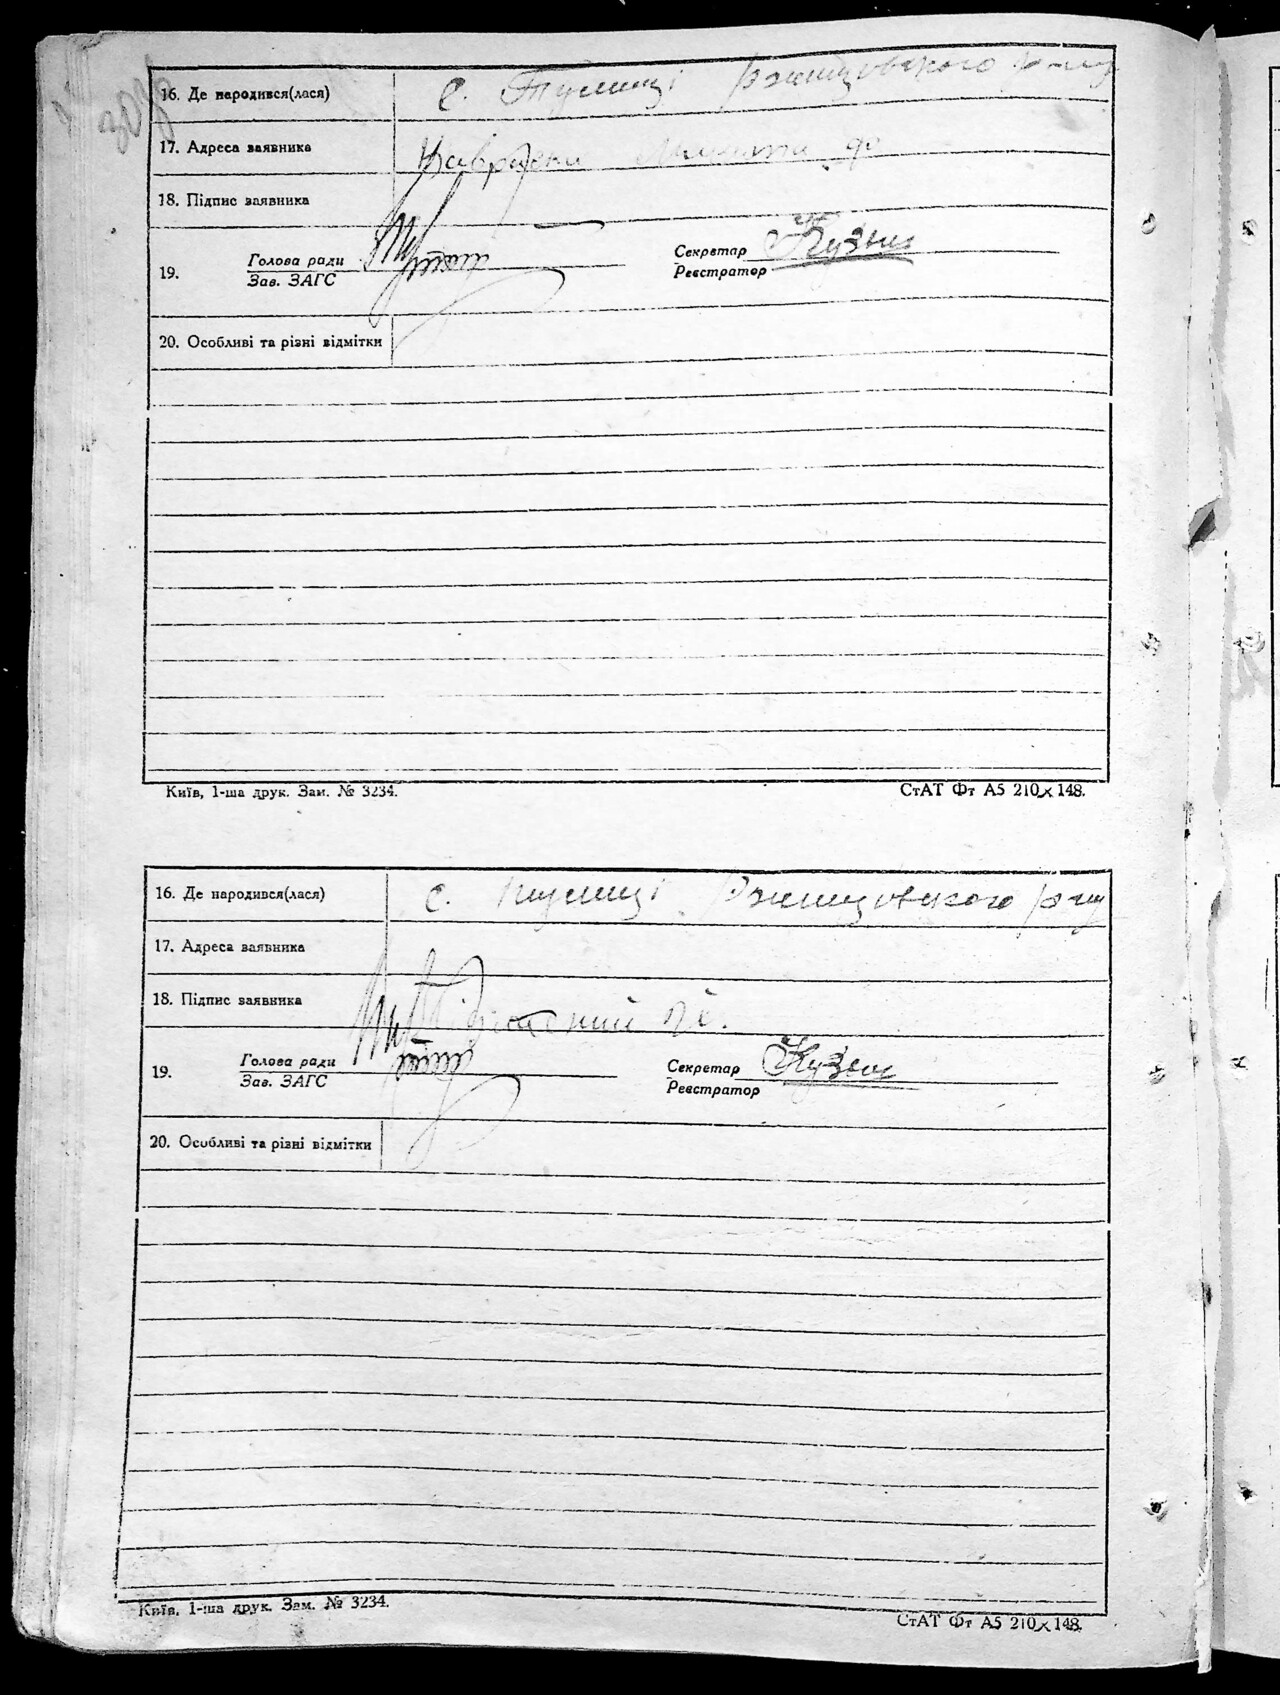 16. Де народився(лася) с. Тулинці Ржищівского р-ну
17. Адреса заявника
18. Підпис заявника
19. Голова ради Секретар Кузьм
Зав. ЗАГС Реєстратор
20. Особливі та різні відмітки
Київ, 1-ша друк. Зам. № 3234. СтАТ Фт А5 210×148.
16. Де народився(лася) с. Тулинці Ржищівского р-ну
17. Адреса заявника
18. Підпис заявника
19. Голова ради Секретар Кузьм
Зав. ЗАГС Реєстратор
20. Особливі та різні відмітки
Київ, 1-ша друк. Зам. № 3234.
СтАТ Фт А5 210×148.